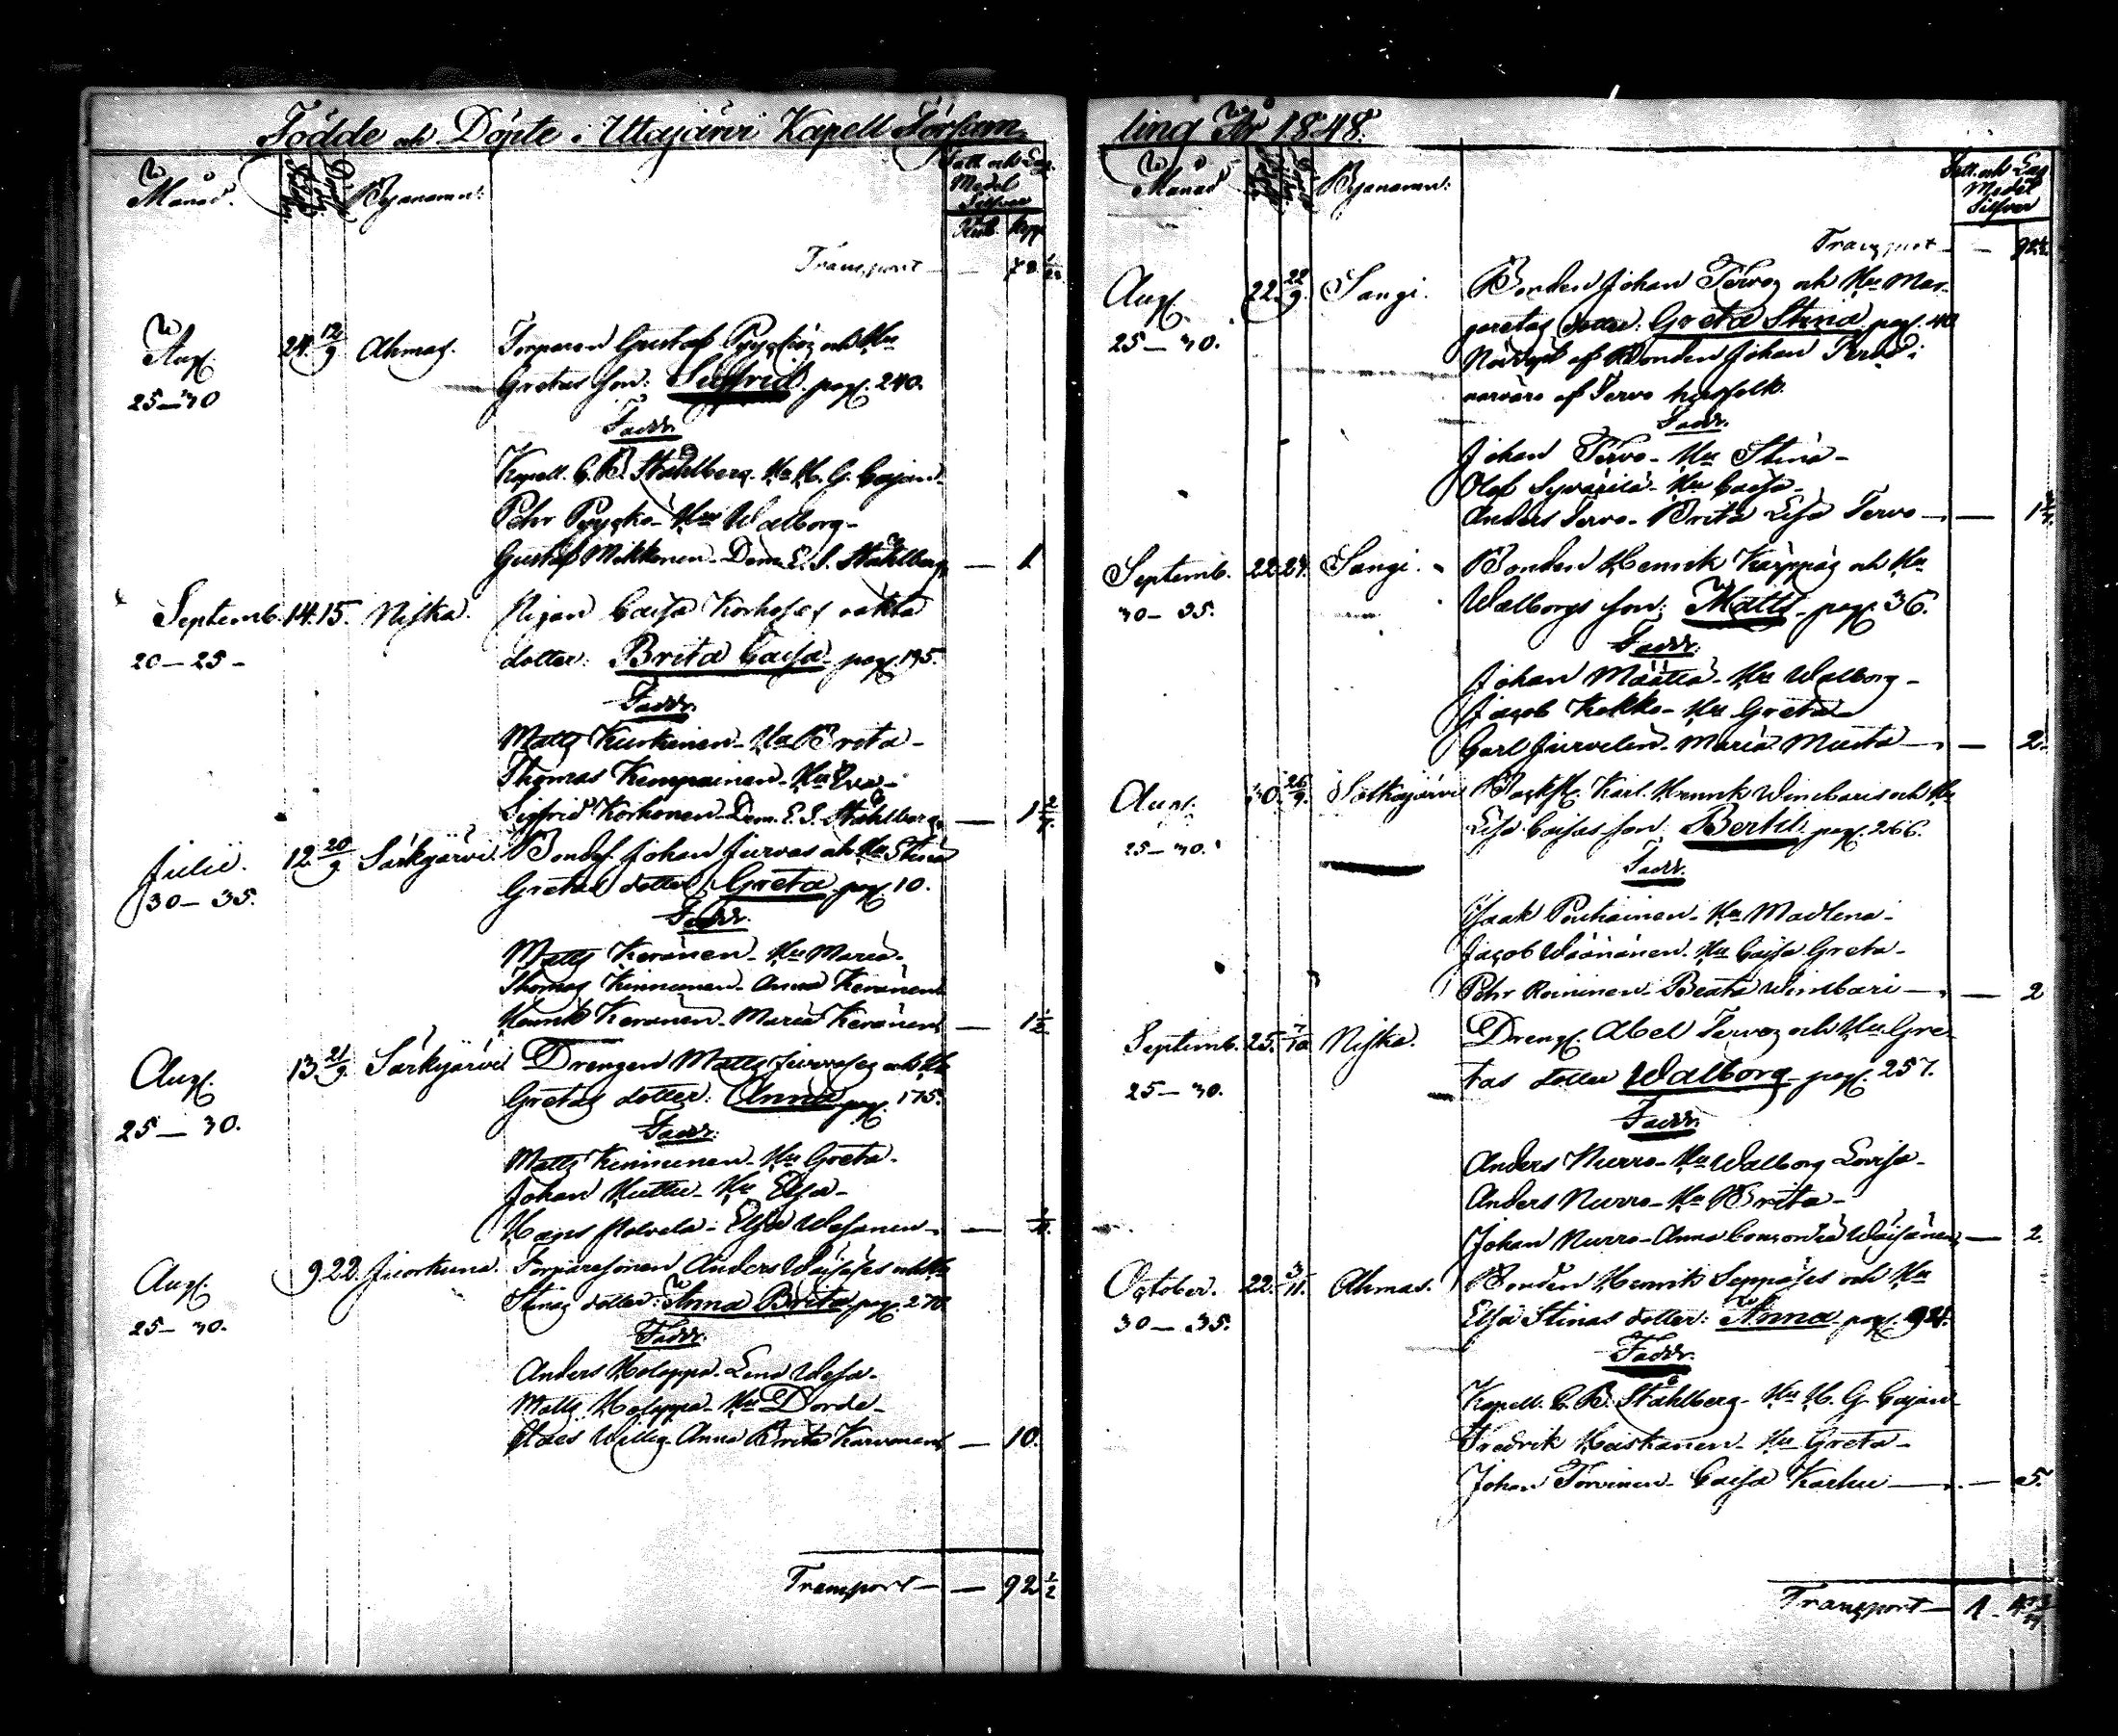 Födde och Döpte i Uttajärvi Kapell Församling År 1848.
Månad.
Byanamn:
Fatt. och Laz.
Medel
Silfver
Rub. kop.
Transport — —
Aug. 24. 12/9 Ahmas. Torparen Gustaf Pyykös och Hu
25—30 Gretas son: Sigfrid pag. 240.
Faddr.
Kapell. C. R. Ståhlberg. Hu H. G. Cajan
Pehr Pyykö - Hu Walborg -
Gustaf Mikkonen - Dem. E. S. Ståhlberg — 1
Septemb. 14. 15. Niska. Pigan Caisa Korhoses oäkta
20—25 - dotter: Brita Caisa pag. 195.
Faddr.
Matts Kurkinen - Hu Brita -
Thomas Kemppainen - Hu Eva -
Sigfrid Korhonen - Dem. E. S. Ståhlberg —
Julii. 12. 20/9 Särkijärvi Bond. Johan Jurvas och Hu Stina
30—35. Gretas dotter Greta pag. 10.
Faddr.
Matts Keränen - Hu Maria -
Thomas Kinnunen - Anna Keränen
Henrik Keränen - Maria Keränen — 1 1/2
Aug. 13. 21/9. Särkijärvi Drengen Matts Jurvas och Hu
25—30. Gretas dotter: Anna pag. 175.
Faddr.
Matts Kinnunen - Hu Greta -
Johan Huttu - Hu Elsa -
Hans Polvela - Elsa Wesanen —
Aug. 9. 22. Juorkuna. Torparesonen Anders Wäisäses och Hu
25—30. Stinas dotter: Anna Brita pag. 270.
Faddr.
Anders Holappa - Lena Wesa -
Matts Holappa - Hu Dorde -
Claes Wellig - Anna Brita Karvonen — 10.
Transport — — 92 1/2
Månad
Byanamn:
Fatt. och Laz.
Medel
Silfver
Transport — — 92 1/2
Aug. 22. 22/9. Sangi. Bonden Johan Tervos och Hu Mar-
25—30. garetas dotter: Greta Stina pag. 40
Nöddöpt af Bonden Johan Tervo i
närvaro af Tervo husfolk.
Faddr.
Johan Tervo - Hu Stina -
Olof Syväjärvi - Hu Caisa -
Anders Tervo - Brita Lisa Tervo —
Septemb. 22. 24. Sangi. Bonden Henrik Karppas och Hu
30—35. Walborgs son: Matts pag. 36.
Faddr.
Johan Määttä - Hu Walborg -
Jacob Kokko - Hu Greta
Carl Jurvelin - Maria Musta — — 2.
Aug. 30. 26/9. Sotkajärvi Backst. Karl Henrik Wimbaris och Hu
25—30. Lisa Caisas son: Bertil pag. 266.
Faddr.
Isaak Ponkainen - Hu Madlena -
Jacob Wäänänen - Hu Caisa Greta -
Pehr Roininen - Beata Wimbari — — 2
Septemb. 25. 7/10 Niska. Dreng. Abel Tervos och Hu Gre-
25—30. tas dotter Walborg pag. 257.
Faddr.
Anders Nurro - Hu Walborg Lovisa -
Anders Nurro - Hu Brita -
Johan Nurro - Anna Concordia Wäisänen — 2.
October. 22. 3/11. Ahmas. Bonden Henrik Seppäses och Hu
30—35. Elsa Stinas dotter: Anna pag. 94.
Faddr.
Kapell. C. R. Ståhlberg - Hu H. G. Cajan
Fredrik Heiskanen - Hu Greta -
Johan Torvinen - Caisa Karhu — — 5.
Transport — 1.